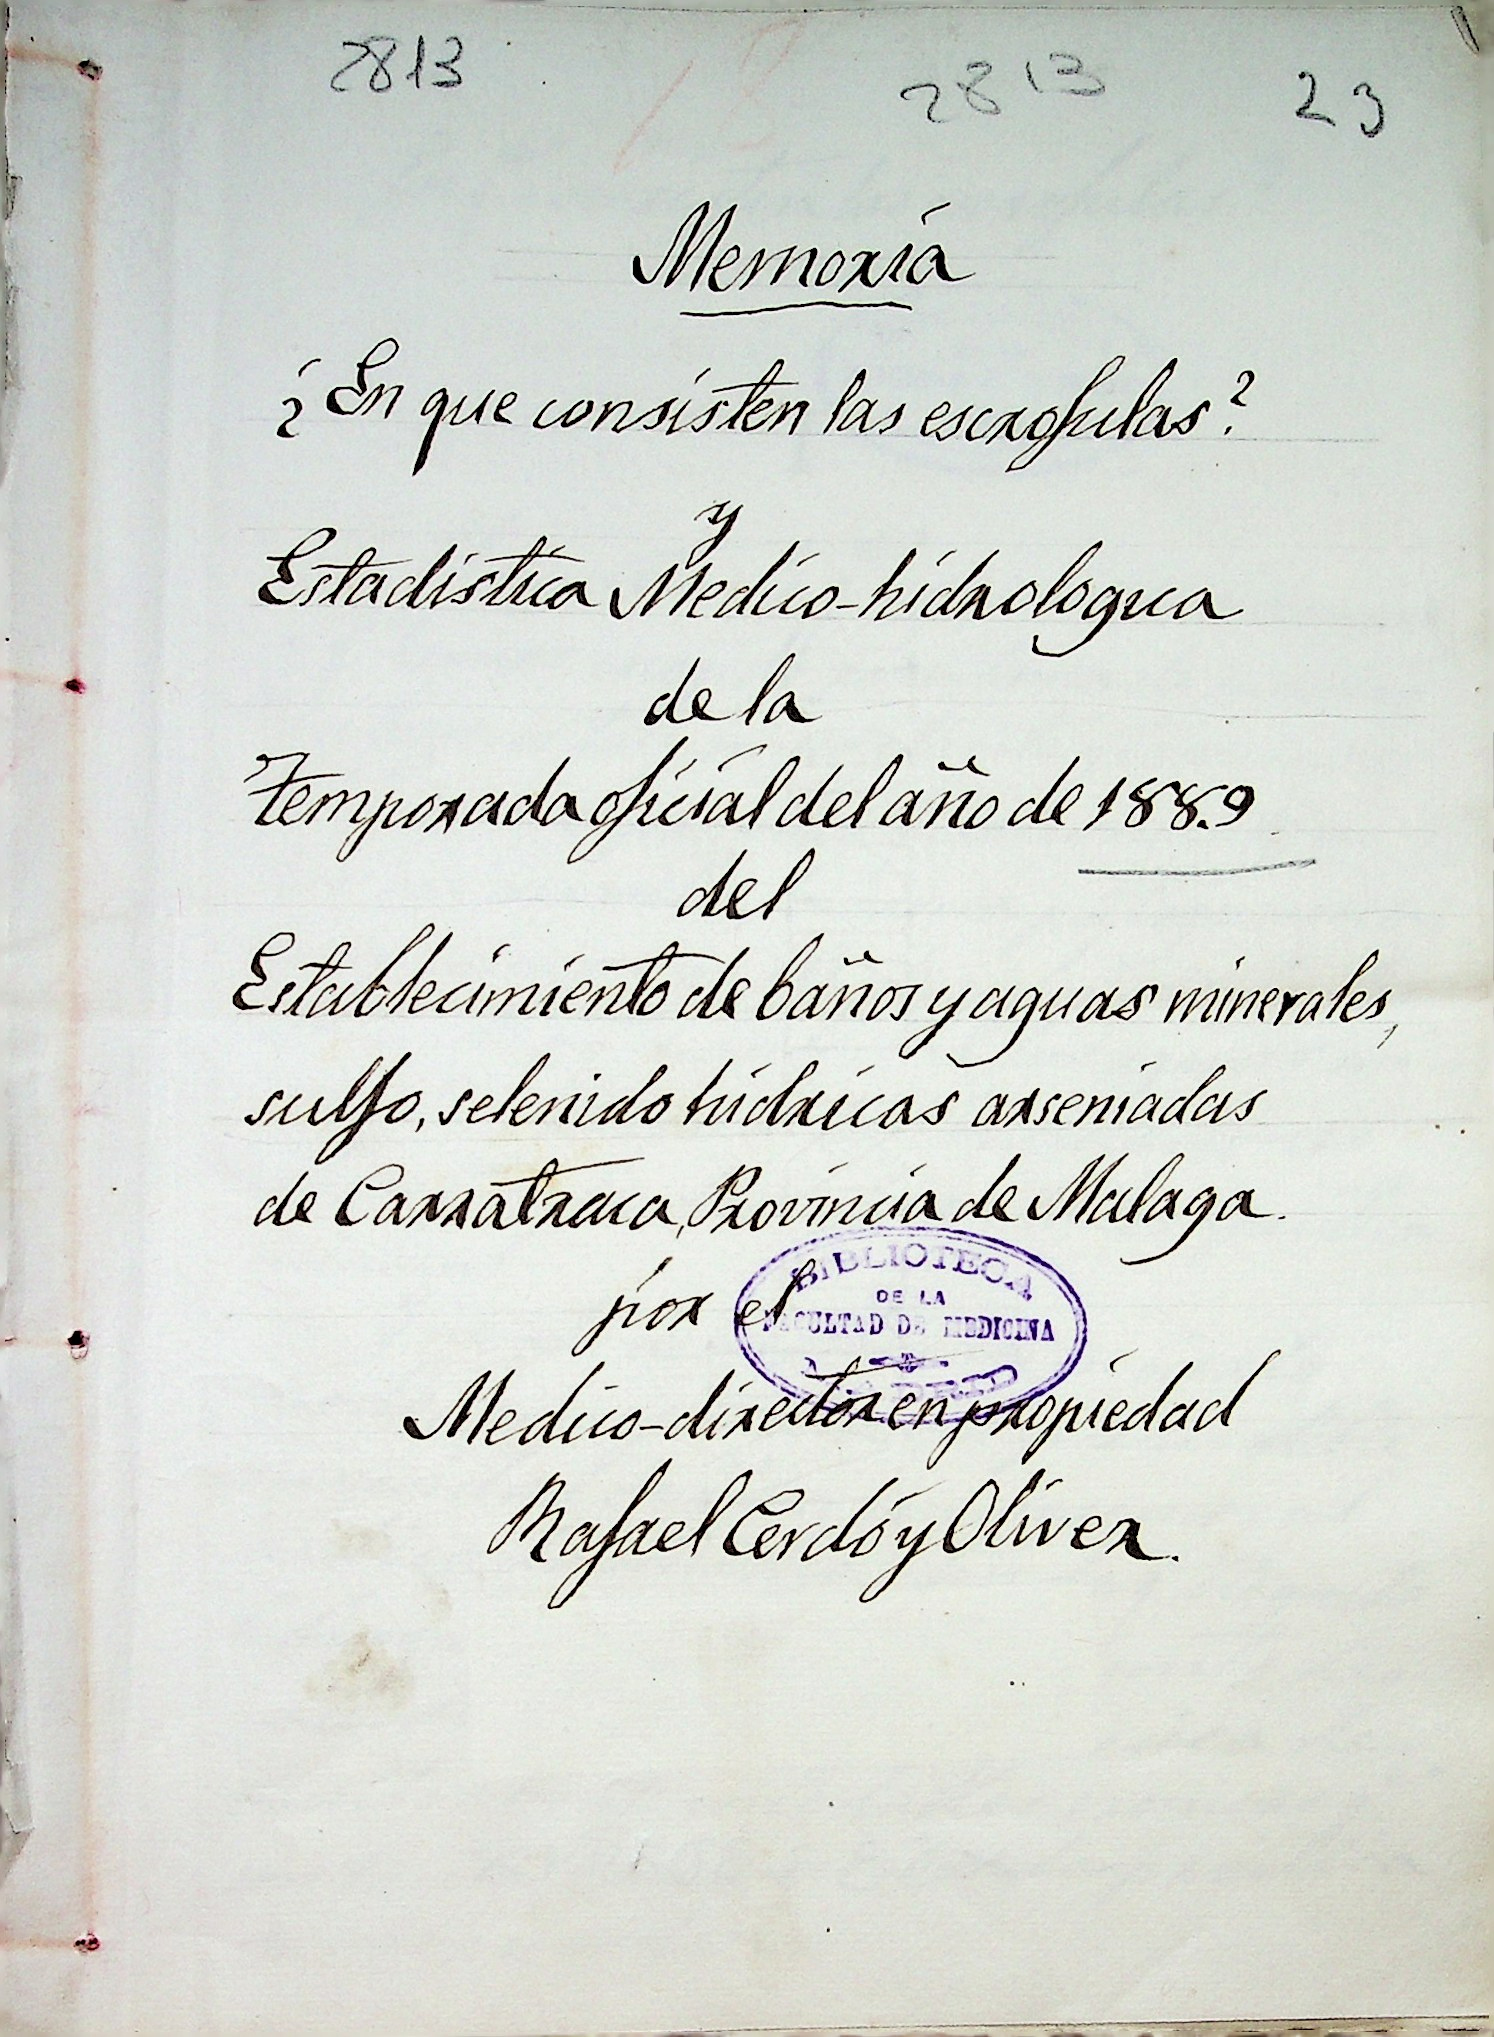 2813 2813 23
Memoria
¿En que consisten las escrofulas?
y
Estadistica Medico-hidrologica
de la
Temporada oficial del año de 1889
del
Establecimiento de baños y aguas minerales,
sulfo, selenido hidricas arseniadas
de Carratraca, Provincia de Malaga.
por el
BIBLIOTECA
DE LA
FACULTAD DE MEDICINA
MADRID
Medico-director en propiedad
Rafael Cerdó y Oliver.